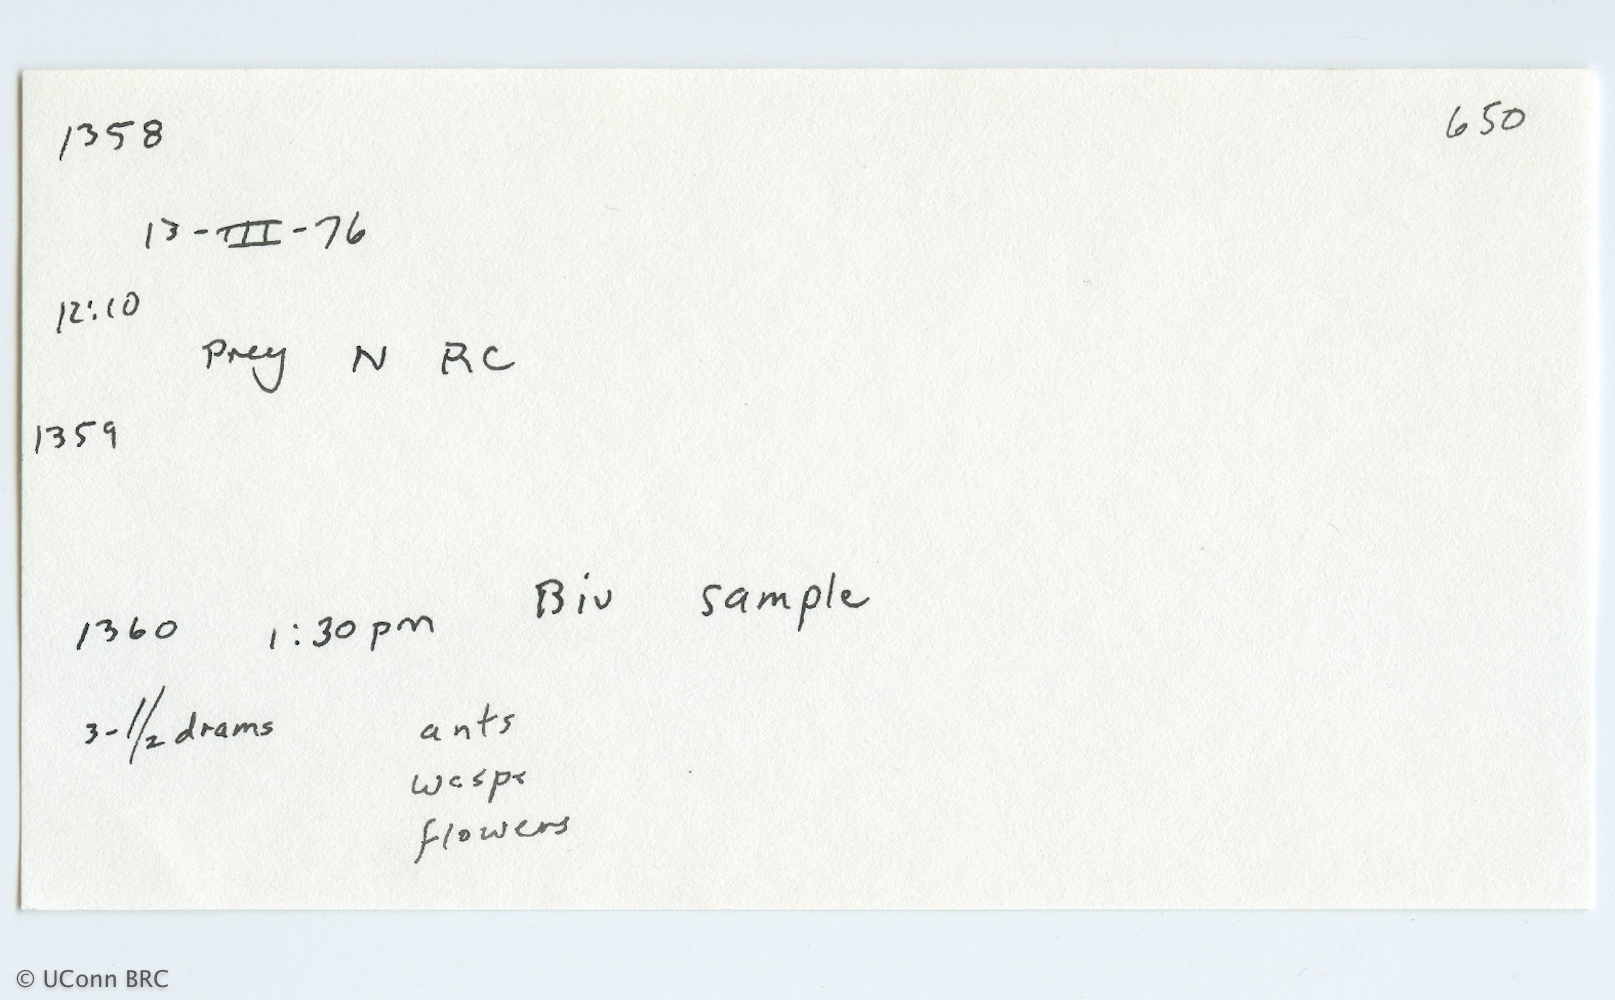 1358 650
13-III-76
12:10
Prey N RC
1359
Biv sample
1360 1:30 pm
3-1/2 drams ants
wasps
flowers
© UConn BRC